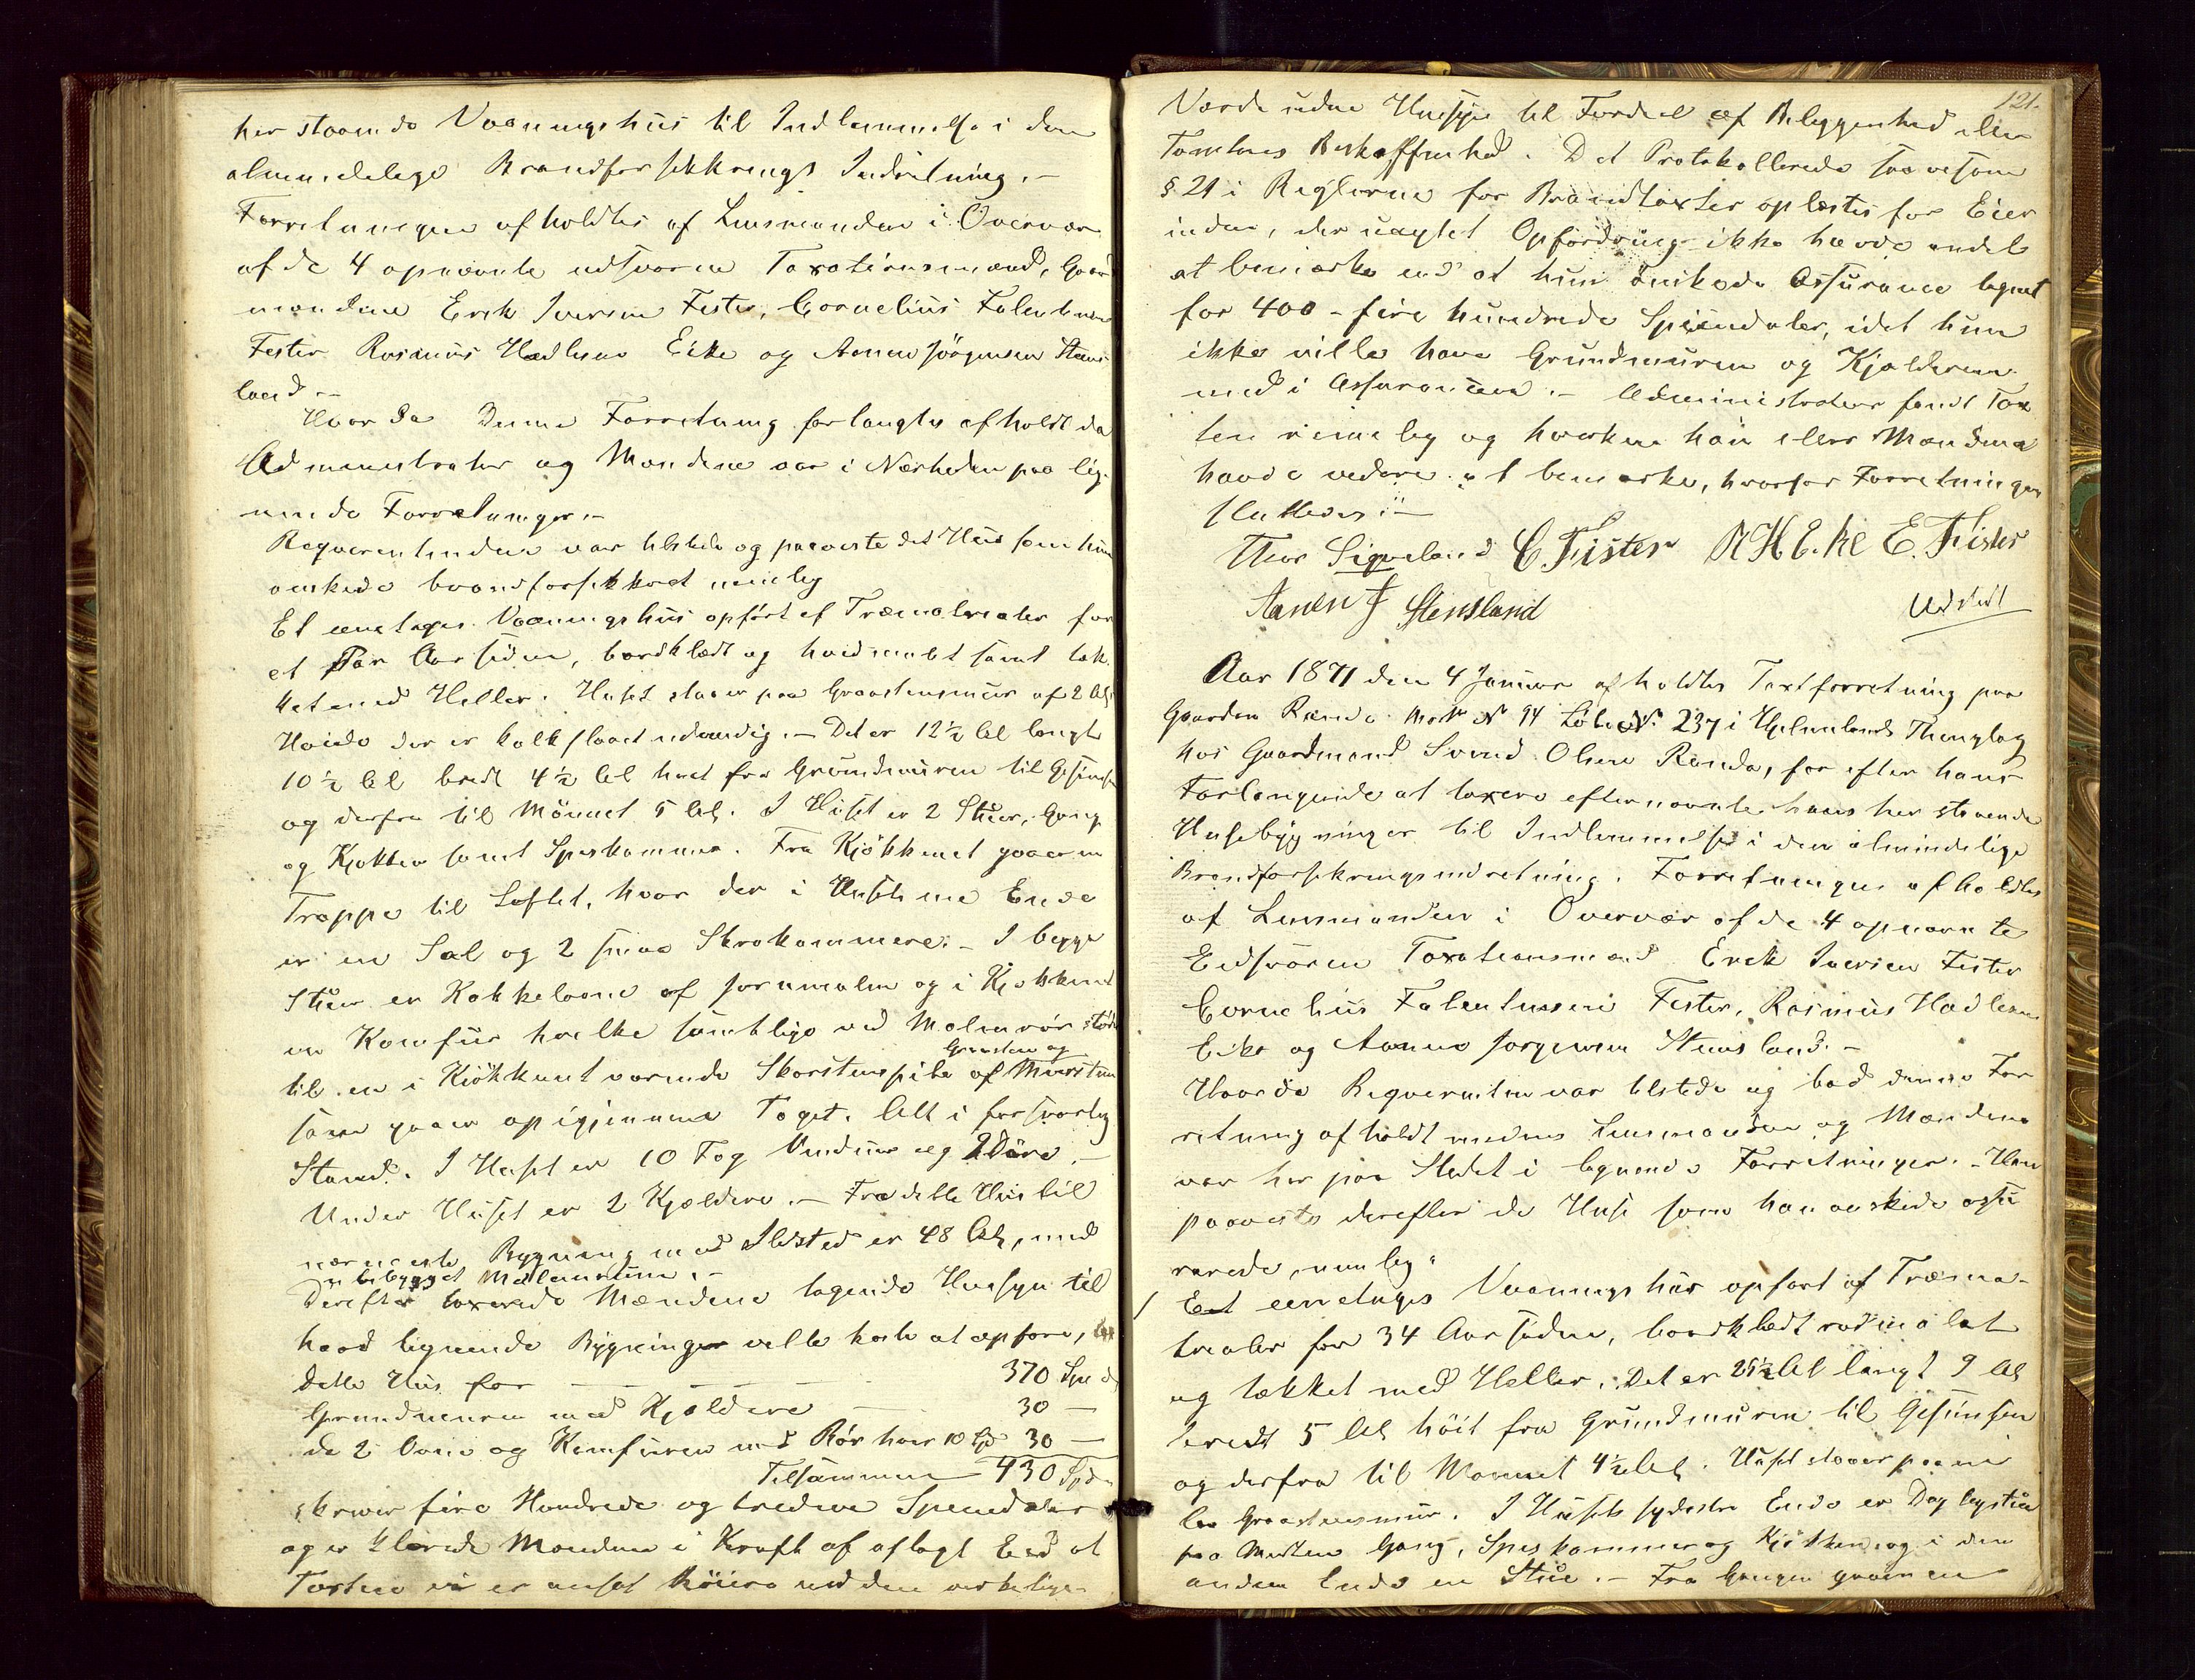 her staaende Vaaningshus til Indlemmelse i den
almindelige Brandforsikkrings Indretning.-
Forretningen afholdtes af Lensmanden i Overvær
af de 4 opnævnte edsvorne Taxationsmænd, Gaard
mændene Erik Iversen Fister, Cornelius Falentinsen
Fister Rasmus Hadlesen Eike og Aanen Jörgensen Stens
land.-
Hvorda Denne Forretning forlangtes afholdt da
Administrator og Mændene var i Nærheden paa lig-
nende Forretninger.-
Reqverentinden var tilstede og paaviste det Huus som hun
önskede brandforsikkret nemlig
Et eenetages Vaaningshus opfört af Træmaterialer for
et Par Aar siden, bordklædt og hvidmalet samt tæk-
ket med Heller. Huset staaer paa Graastensmuur af 2 Al
Høide der er kalkslaaet udvendig.- Det er 12½ Al langt
10½ Al bredt 4½ Al høit fra Grundmuren til Gesimsen
og derfra til Mönnet 5 Al. I Huset er 2 Stuer, Gang
og Kjøkken samt Spiskammer. Fra Kjökkenet gaaer en
Trappe til Loftet, hvor der i Husets ene Ende
er en Sal og 2 smaa Skrakammere.- I begge
Stuer er Kakkelovne af Jernmalm og i Kjökkenet
en Komfur hvilke samtlige ved Malmrör støder
til en i Kjökkenet værende Skorstenspibe af Graasten og Muursten
som gaaer op igjennem Taget. Alt i forsvarlig
Stand. I Huset er 10 Fag Vinduer og 2 Döre.-
Under Huset er 2 Kjældere.- Fra dette Hus til
nærmeste Bygning med Ildsted er 48 Al, med
ubebygget Mellemrum.-
Derefter taxerede Mændene tagende Hensyn til
hvad lignende Bygninger ville koste at opføre,
dette Hus for — — — 370 Spd
Grundmuren med Kjældere — 30 —
de 2 Ovne og Komfuren med Rör hver 10 Spd 30 —
Tilsammen 430 Spd
skriver fire Hundrede og tredive Speciedaler
og erklærede Mændene i Kraft af aflagt Eed at
Taxten ei er ansat höiere end den virkelige
121.
Værdi uden Hensyn til Fordeel af Beliggenhed eller
Tomtens Beskaffenhed. Det Protokollerede saavelsom
§ 21 i Reglerne for Brandtaxter oplæstes for Eier
inden, der uagtet Opfordring ikke havde andet
at bemærke end at hun önskede Assurance tegnet
for 400 - fire hundrede Speciedaler, idet hun
ikke ville have Grundmuren og Kjælderen
med i Assurancen.- Administrator fandt Tax
ten rimelig og hverken han eller Mændene
havde videre at bemærke, hvorfor Forretningen
sluttedes:-
Thor Sigveland C Fister R H Eike E. Fister
Aanen J Stensland
Udstedt
Aar 1871 den 4 Januar afholdtes Taxtforretning paa
Gaarden Rande Matr N 94 Löbe N. 237 i Hjelmelands Thinglag
hos Gaardmand Svend Olsen Rande, for efter hans
Forlangende at taxere efternævnte hans her staaende
Husebygninger til Indlemmelse i den almindelige
Brandforsikringsindretning. Forretningen afholdtes
af Lensmanden i Overvær af de 4 opnævnte
Eedsvorne Taxationsmænd Erik Iversen Fister
Cornelius Falentinsen Fister, Rasmus Hadlesen
Eike og Aanen Jörgensen Stensland.-
Hvorda Reqvirenten var tilstede og bad denne For
retning afholdt medens Lensmanden og Mændene
var her paa Stedet i lignende Forretninger.- Han
paaviste derefter de Huse som han önskede assu
rerede, nemlig:
1 Eet eenetages Vaaningshus opført af Træma-
terialer for 34 Aar siden, bordklædt rødmalet
og tækket med Heller. Det er 25½ Al langt 9 Al
bredt 5 Al höit fra Grundmuren til Gesimsen
og derfra til Mønnet 4½ Al. Huset staaer paa en
lav Graastensmur. I Husets sydøstre Ende er Daglegstue
paa Midten Gang, Spiskammer og Kjökken og i den
anden Ende en Stue.- Fra Gangen gaaer en